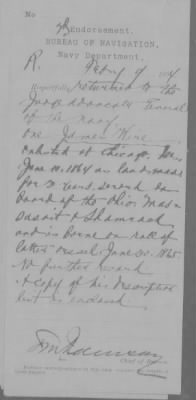 No
2d Endorsement.
BUREAU OF NAVIGATION,
Navy Department,
R. Feby 9, 1884
Respectfully returned to the
Judge Advocate General
of the Navy
One James
enlisted at Chicago, Ills.
June 10, 1864 as landsman
for 2 years, served on
board of the Ohio, Mas-
sasoit & Shamrock
and is borne on rolls of
latter vessel June 30, 1865
No further record
A copy of his descriptive
list is enclosed
Chief of Bureau